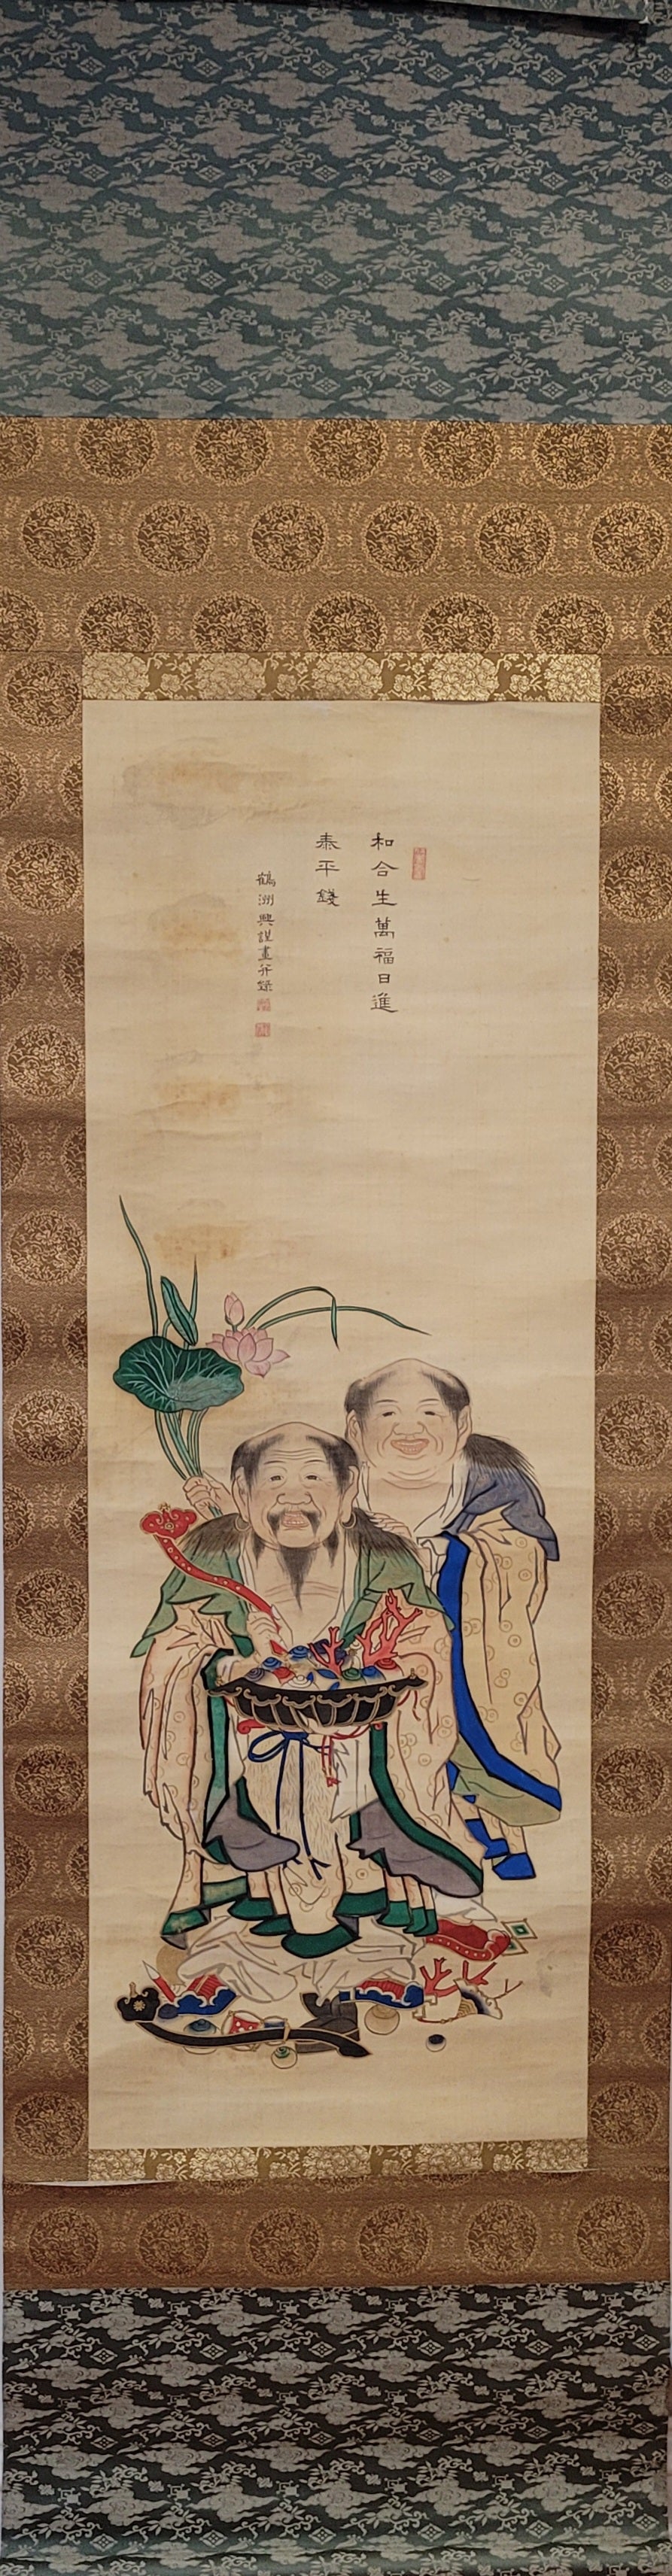 和合生萬福日進
泰平錢
鶴洲興謹畫并錄